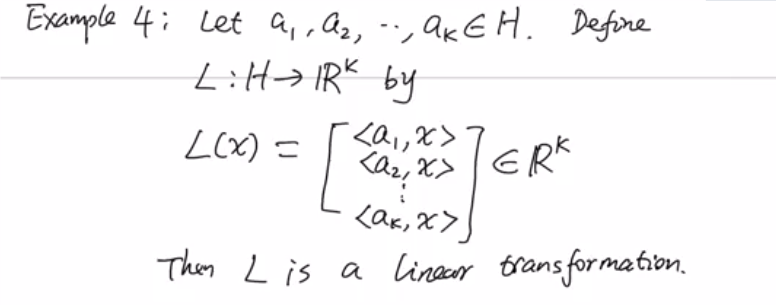 Example 4: Let a₁, a₂, ..., aₖ ∈ H. Define
L: H → ℝᴷ by
L(x) = [<a₁, x>
<a₂, x>
⋮
<aₖ, x>] ∈ ℝᴷ
Then L is a linear transformation.